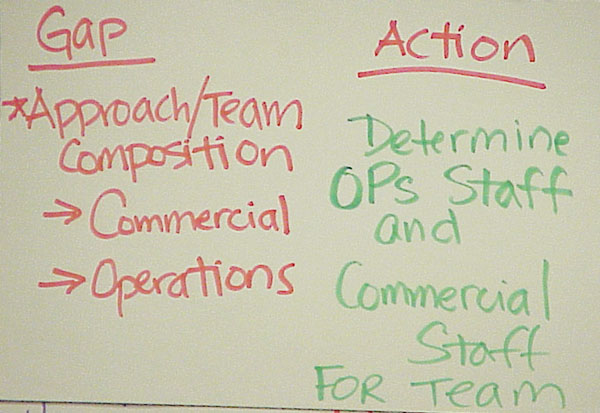 Gap
*Approach/Team
Composition
→ Commercial
→ Operations
Action
Determine
OPs Staff
and
Commercial
Staff
FOR Team